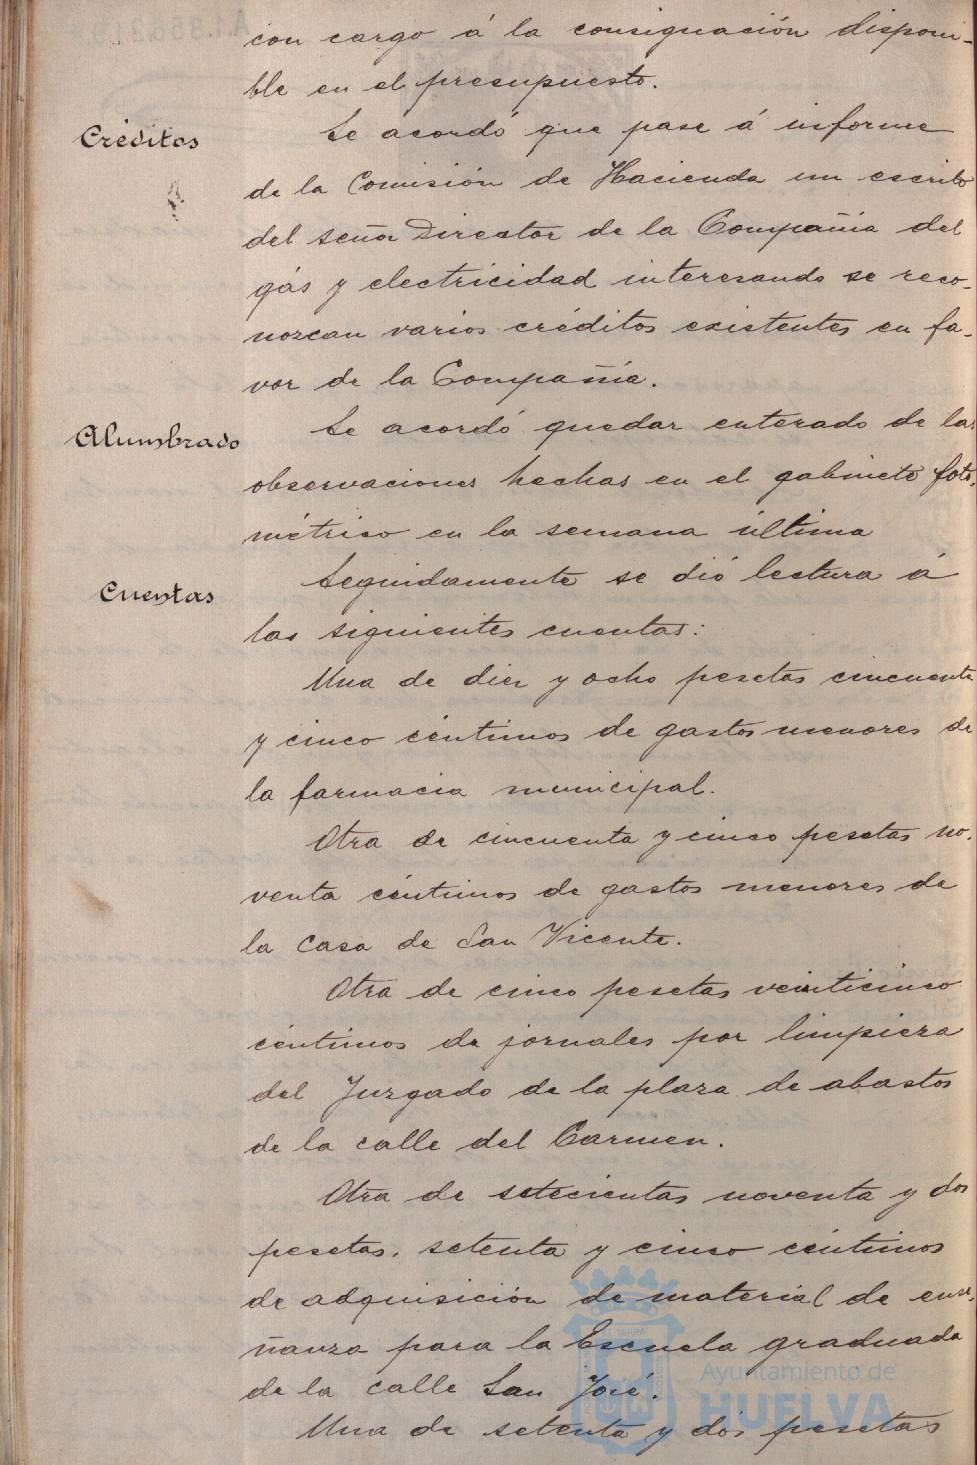 con cargo á la consignación disponi-
ble en el presupuesto.
Créditos
Se acordó que pase á informe
de la Comisión de Hacienda un escrito
del señor Director de la Compañia del
gás y electricidad interesando se reco-
nozcan varios créditos existentes en fa-
vor de la Compañía.
Alumbrado
Se acordó quedar enterado de las
observaciones hechas en el gabinete foto-
métrico en la semana última
Cuentas
Seguidamente se dió lectura á
las siguientes cuentas:
Una de diez y ocho pesetas cincuenta
y cinco céntimos de gastos menores de
la farmacia municipal.
Otra de cincuenta y cinco pesetas no-
venta céntimos de gastos menores de
la Casa de San Vicente.
Otra de cinco pesetas veinticinco
céntimos de jornales por limpieza
del Juzgado de la plaza de abastos
de la calle del Carmen.
Otra de setecientas noventa y dos
pesetas, setenta y cinco céntimos
de adquisición de material de ense-
ñanza para la Escuela graduada
de la calle San José.
Una de setenta y dos pesetas
Ayuntamiento de
HUELVA